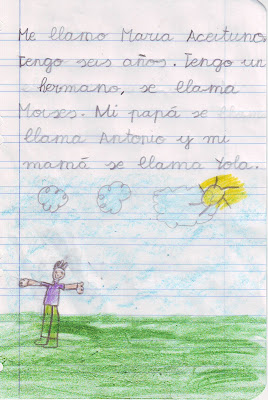 Me llamo Maria Aceituno.
Tengo seis años. Tengo un
hermano, se llama
Moises. Mi papá se llama
llama Antonio y mi
mamá se llama Yola.